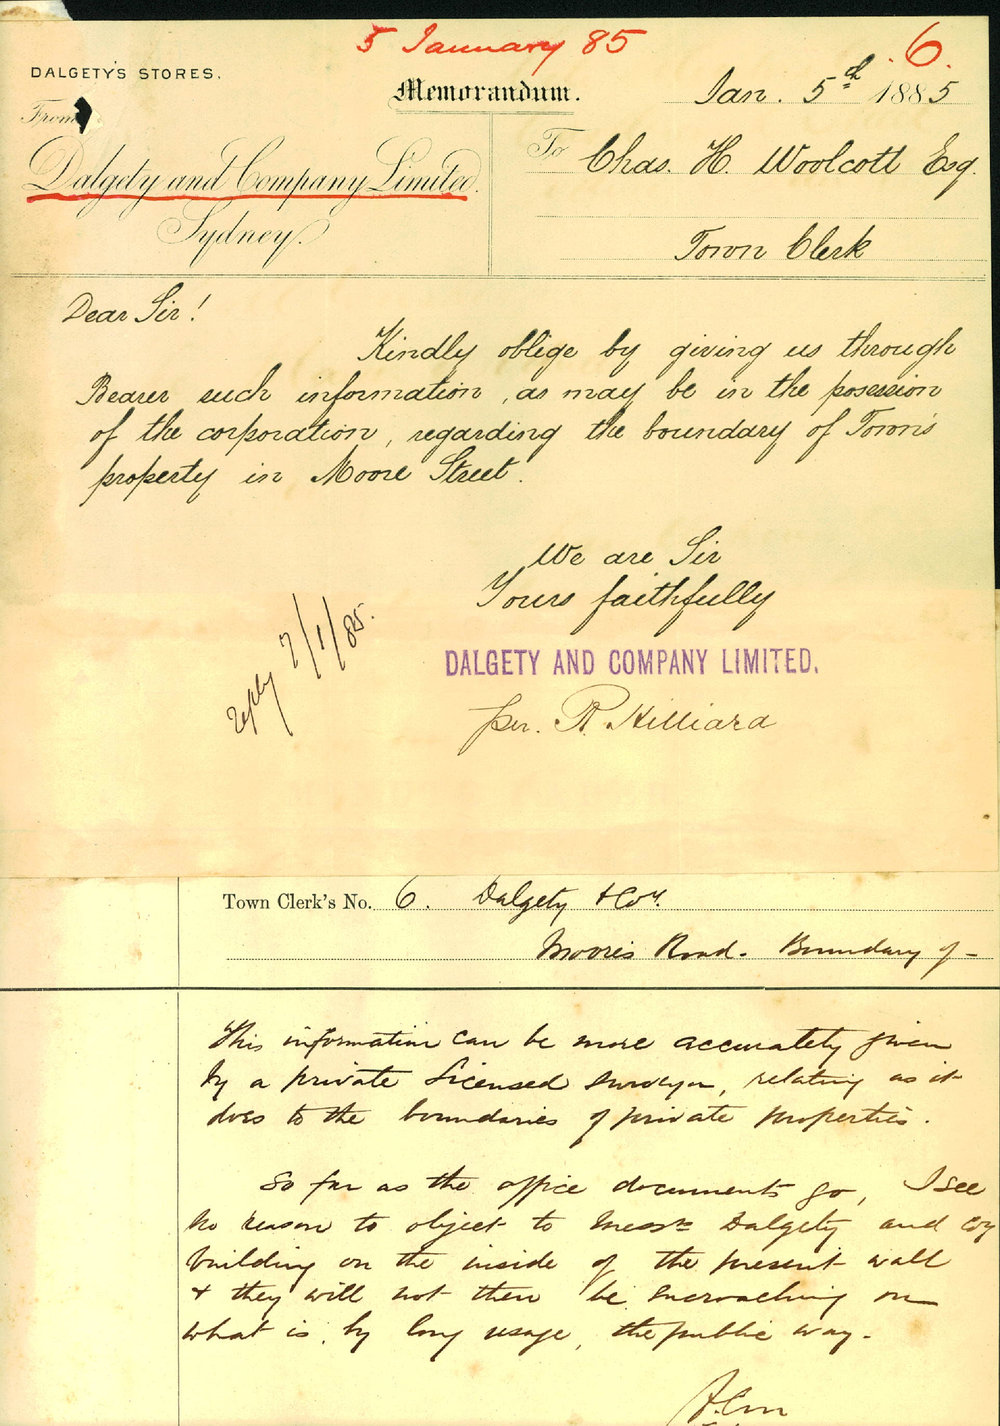 5 January 85
6.
DALGETY'S STORES.
Memorandum.
Jan. 5th 1885
From
Dalgety and Company Limited.
Sydney.
To Chas. H. Woolcott Esq.
Town Clerk
Dear Sir!
Kindly oblige by giving us through
Bearer such information, as may be in the posession
of the corporation, regarding the boundary of Town's
property in Moore Street.
We are Sir
Yours faithfully
DALGETY AND COMPANY LIMITED.
per. R. Hilliard
reply 7/1/85.
Town Clerk's No. 6. Dalgety & Coy.
Moore's Road. Boundary of -
This information can be more accurately given
by a private Licensed Surveyor, relating as it
does to the boundaries of private properties.
So far as the office documents go, I see
no reason to object to Messrs Dalgety and Coy
building on the inside of the present wall
& they will not then be encroaching on
what is, by long usage, the public way.